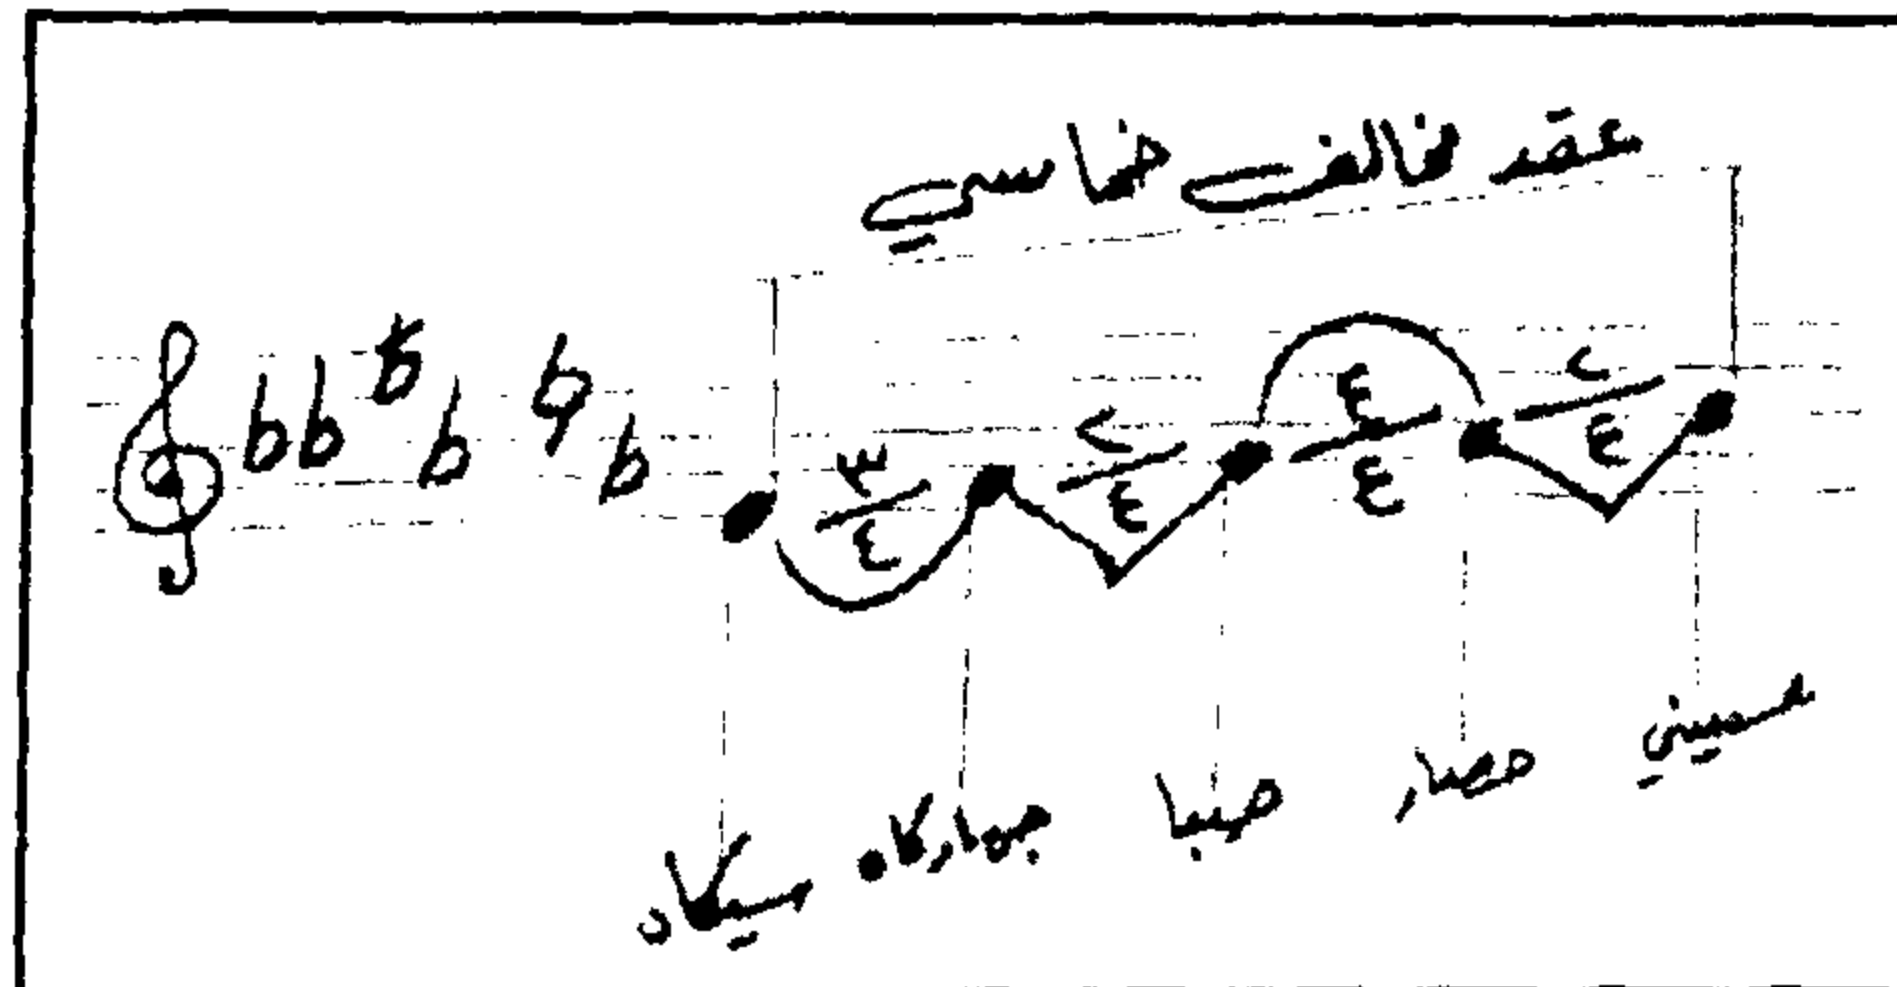 عقد مخالف خماسي
٣/٤ ٢/٤ ٤/٤ ٢/٤
سيكاه جهاركاه صبا حصار حسيني